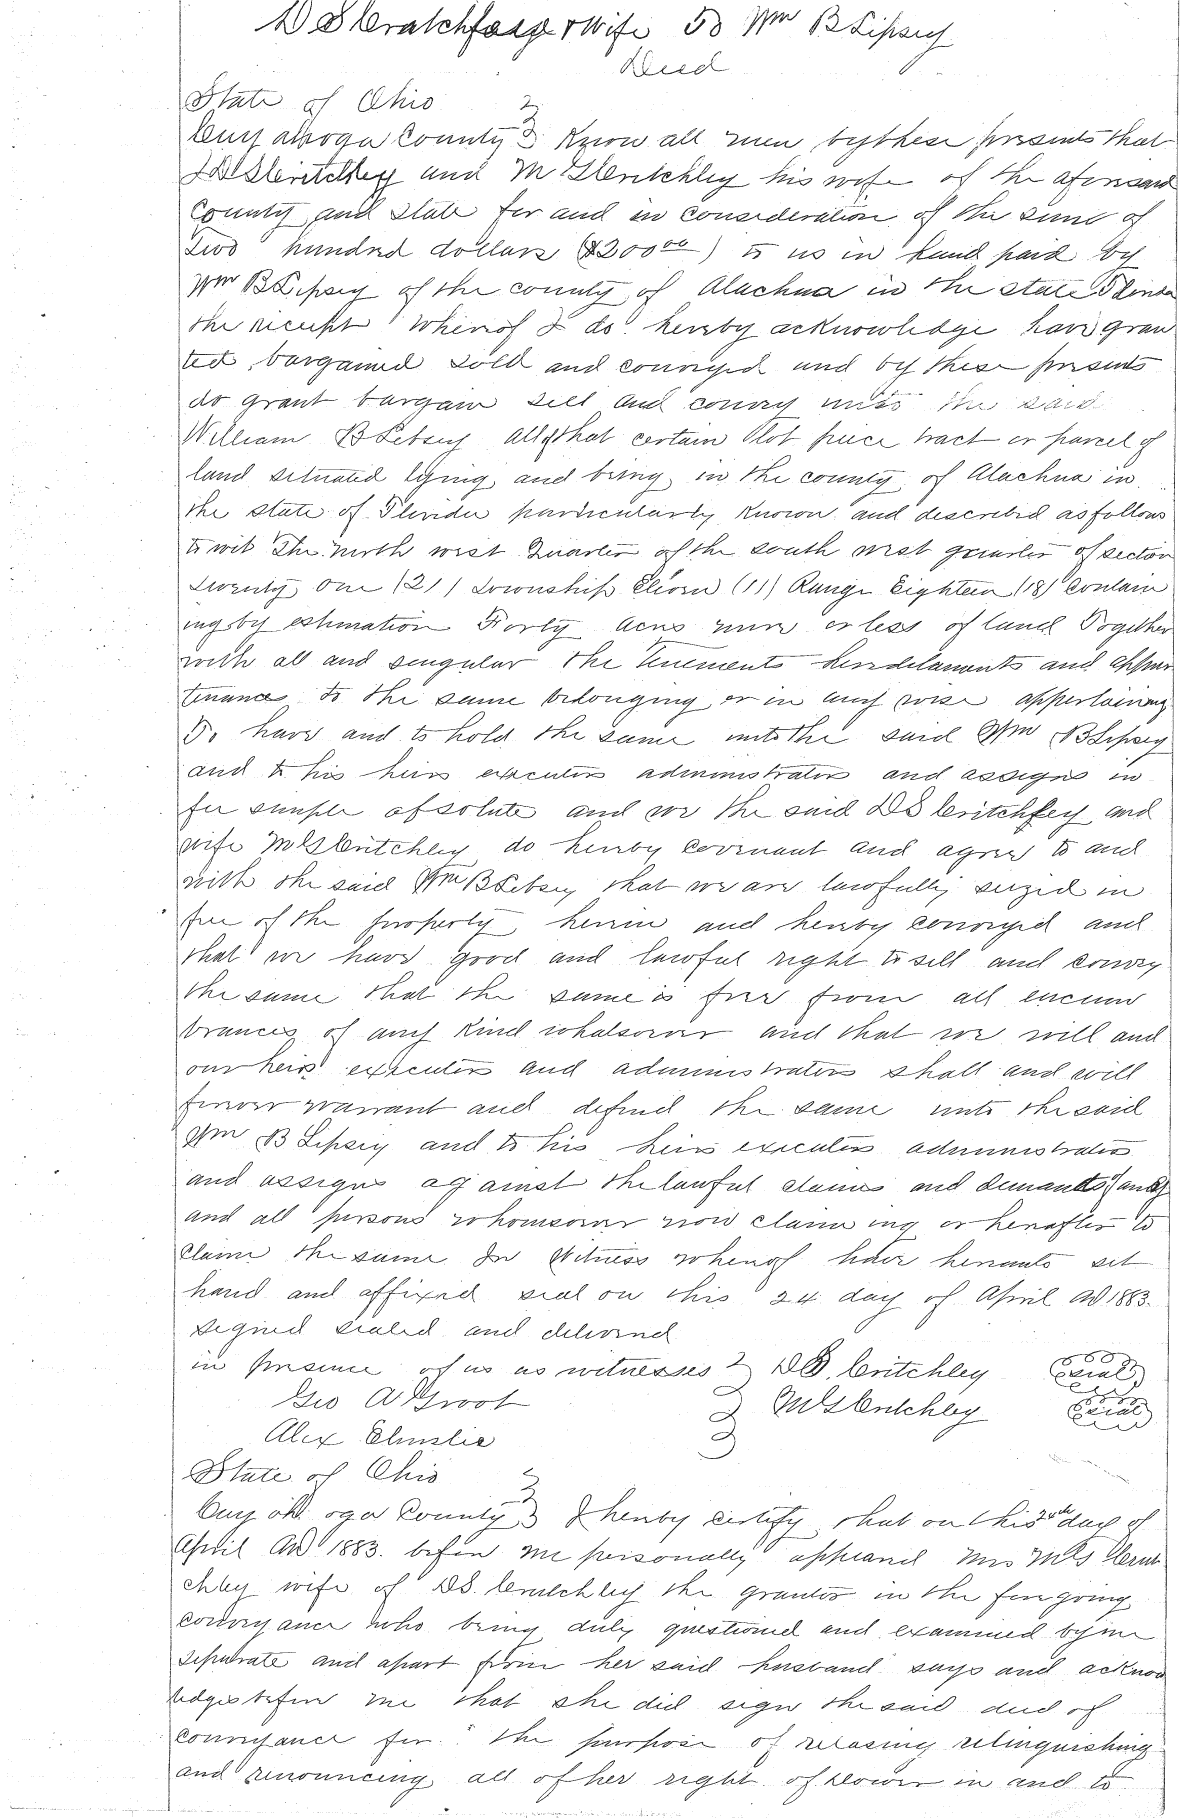 D S Cratchfeey & wife To Wm B Lipsey
Deed
State of Ohio
Cuyahoga County } Know all men by these presents that
D S Critchley and M S Critchley his wife of the aforesaid
County and State for and in consideration of the sum of
two hundred dollars ($200 00) to us in hand paid by
Wm B Lipsey of the county of Alachua in the state Florida
the receipt whereof I do hereby acknowledge have gran
ted bargained sold and conveyed and by these presents
do grant bargain sell and convey unto the said
William B Lebsey all that certain lot piece tract or parcel of
land situated lying and being in the county of Alachua in
the state of Florida particularly known and described as follows
to wit The north west Quarter of the south west quarter of section
twenty one (21) Township Eleven (11) Range Eighteen (18) contain
ing by estimation Forty acres more or less of land Together
with all and singular the tenements heredetaments and appur
tenances to the same belonging or in any wise appertaining
To have and to hold the same unto the said Wm B Lipsey
and to his heirs executors administrators and assigns in
fee simple absolute and we the said D S Critchfey and
wife M S Critchley do hereby covenant and agree to and
with the said Wm B Lebsey that we are lawfully seized in
fee of the property herein and hereby conveyed and
that we have good and lawful right to sell and convey
the same that the same is free from all encum
brances of any kind whatsoever and that we will and
our heirs executors and administrators shall and will
forever warrant and defend the same unto the said
Wm B Lipsey and to his heirs executors administrators
and assigns against the lawful claims and demands of any
and all persons whomsoever now claiming or hereafter to
claim the same In Witness whereof have hereunto set
hand and affixed seal on this 24 day of April AD 1883.
Signed sealed and delivered
in presence of us as witnesses } D S. Critchley (Seal)
Geo A Groot } M S Critchley (Seal)
Alex Elmslie
State of Ohio
Cuyahoga County } I hereby certify that on this 24th day of
April AD 1883. before me personally appeared Mrs M S Crit
chley wife of D S. Critchley the grantor in the foregoing
conveyance who being duly questioned and examined by me
separate and apart from her said husband says and acknow
ledges before me that she did sign the said deed of
conveyance for the purpose of releasing relinquishing
and renouncing all of her right of Dower in and to